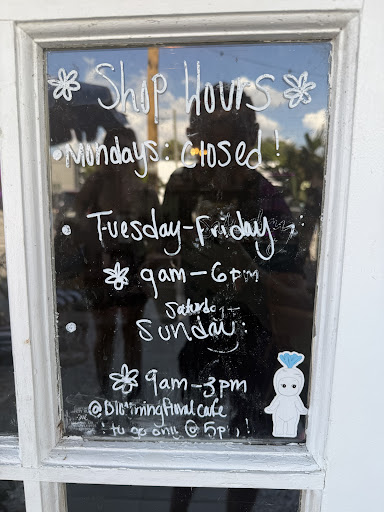 Shop Hours
• Mondays: closed!
• Tuesday-Friday:
9am-6pm
• Sunday:
9am-3pm
@Bloomingfloralcafe
to go only @ 5p